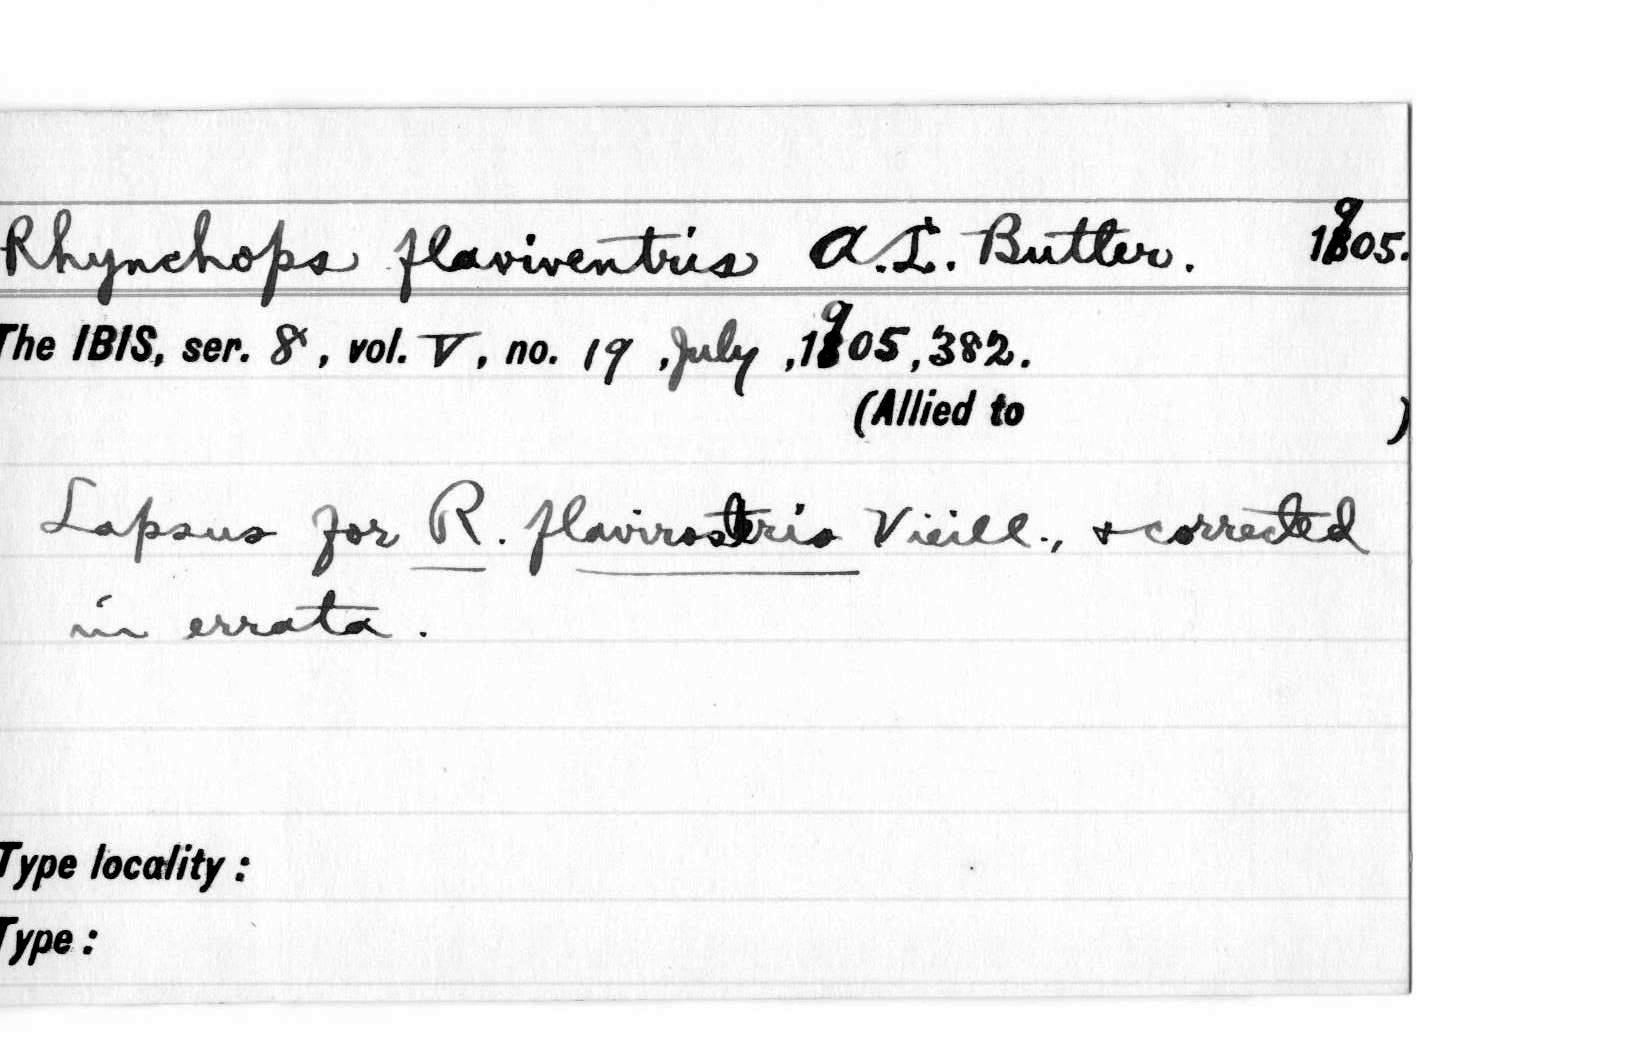 Rhynchops flaviventris A.L. Butler. 1905.
The IBIS, ser. 8, vol. V, no. 19, July, 1905, 382.
(Allied to )
Lapsus for R. flavirostris Vieill., & corrected
in errata.
Type locality:
Type: